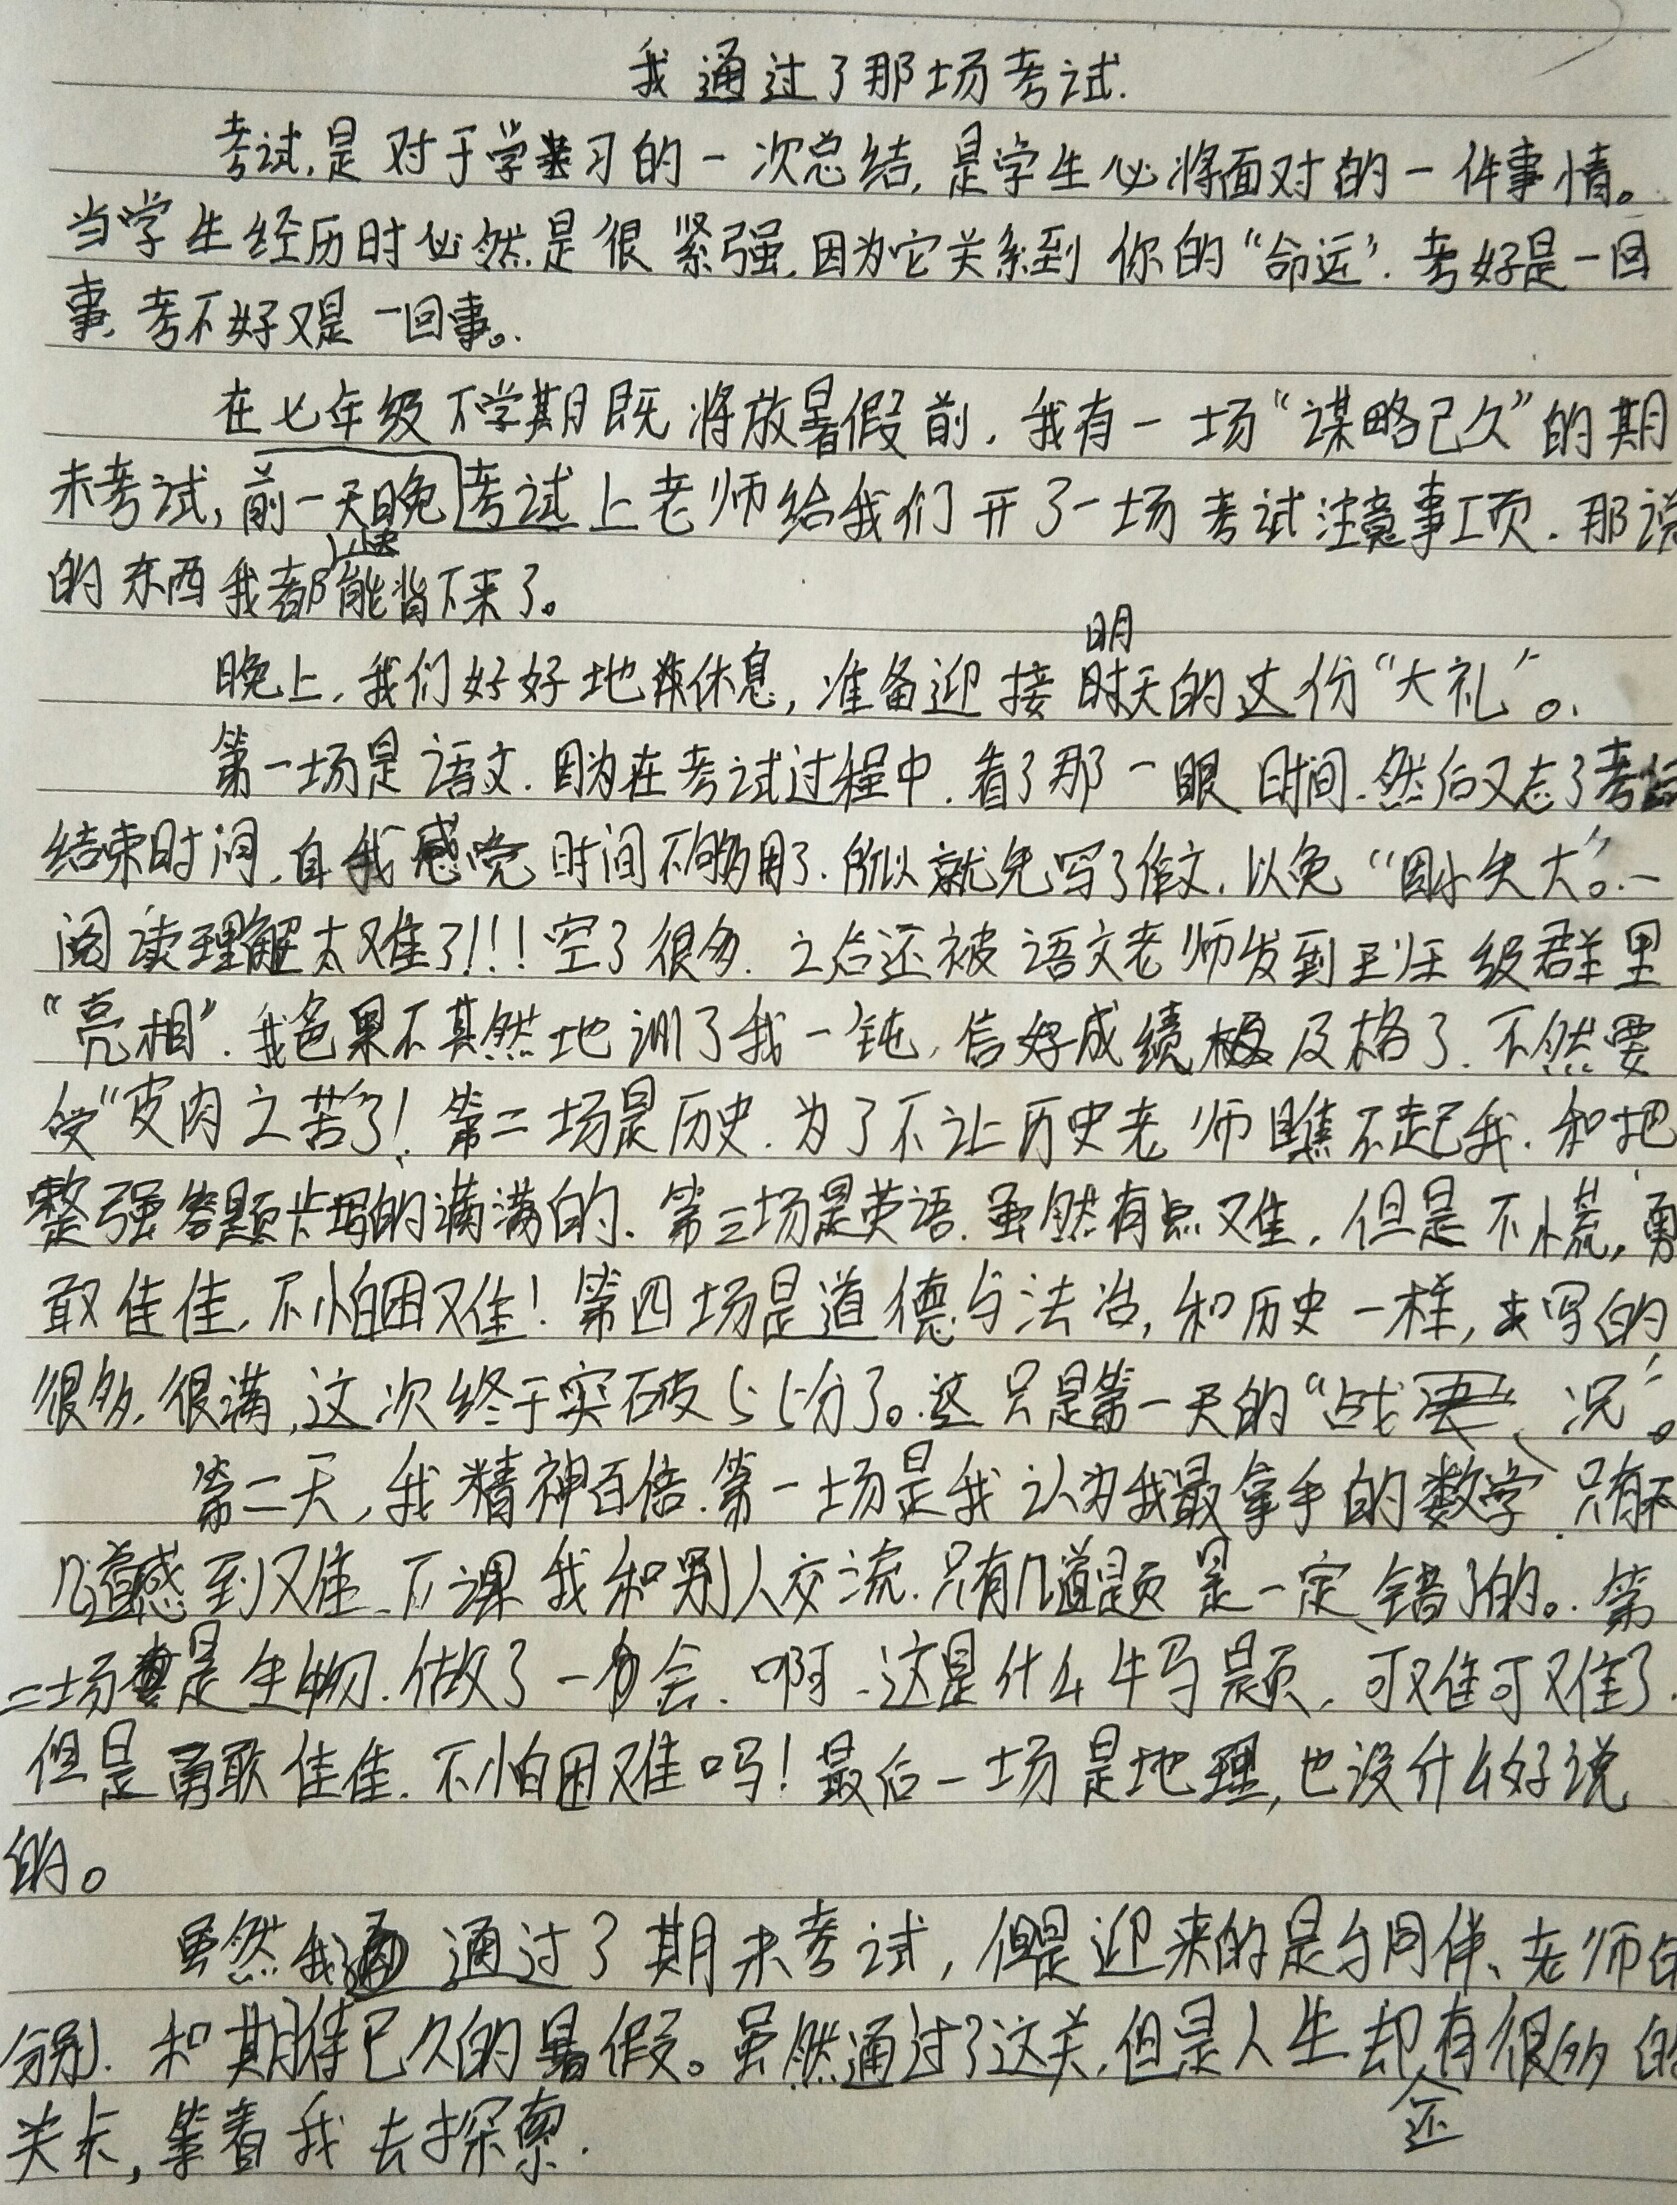 我通过了那场考试.
考试,是对于学习的一次总结,是学生必将面对的一件事情。
当学生经历时必然是很紧强,因为它关系到你的“命运”.考好是一回
事,考不好又是一回事。
在七年级下学期既将放暑假前,我有一场“谋略已久”的期
末考试,前一天晚考试上老师给我们开了一场考试注意事项.那说
的东西我都快能背下来了。
晚上,我们好好地休息,准备迎接明天的这份“大礼”。
第一场是语文.因为在考试过程中.看了那一眼时间.然后又忘了考试
结束时间,自我感觉时间不够用了.所以就先写了作文,以免“因小失大”。
阅读理解太难了!!!空了很多.之后还被语文老师发到班级群里
“亮相”.我爸果不其然地训了我一钝,信好成绩及格了.不然要
受“皮肉之苦”了!第二场是历史.为了不让历史老师瞧不起我.和把
整强答题卡写的满满的.第三场是英语.虽然有点难,但是不慌,勇
敢佳佳,不怕困难!第四场是道德与法治,和历史一样,写的
很多,很满,这次终于突破55分了。这只是第一天的“战况”。
第二天,我精神百倍.第一场是我认为我最拿手的数学.只有
几道感到难.下课我和别人交流.只有几道题是一定错了的。第
二场是生物.做了一会.啊.这是什么牛马题,可难可难了.
但是勇敢佳佳.不怕困难吗!最后一场是地理,也没什么好说
的。
虽然我通过了期末考试,但是迎来的是与同伴、老师的
分别.和期待已久的暑假。虽然通过了这关,但是人生却还有很多的
关卡,等着我去探索.